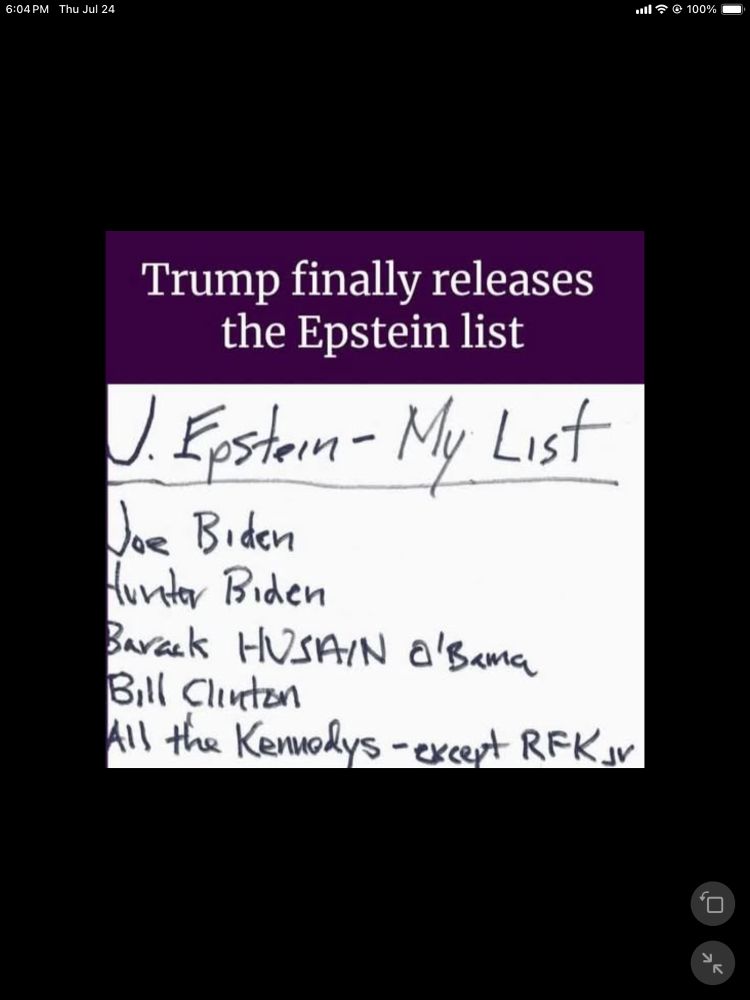 6:04 PM Thu Jul 24 100%
Trump finally releases
the Epstein list
J. Epstein - My List
Joe Biden
Hunter Biden
Barack HUSAIN O'Bama
Bill Clinton
All the Kennedys - except RFK Jr